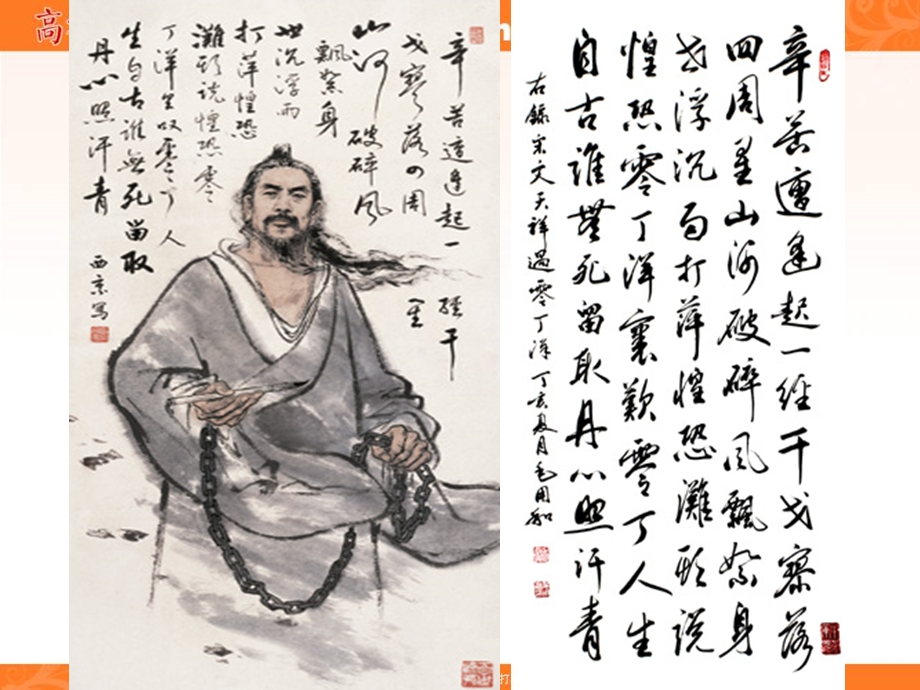 高
辛苦遭逢起一經干
戈寥落四周星
山河破碎風
飄絮身
世沉浮雨
打萍惶恐
灘頭説惶恐零
丁洋里叹零丁人
生自古誰無死留取
丹心照汗青
西京写
辛苦遭逢起一经干戈寥落
四周星山河破碎風飄絮身
世浮沉雨打萍惶恐灘頭説
惶恐零丁洋裏歎零丁人生
自古誰無死留取丹心照汗青
右錄宋文天祥過零丁洋 丁亥夏月
打